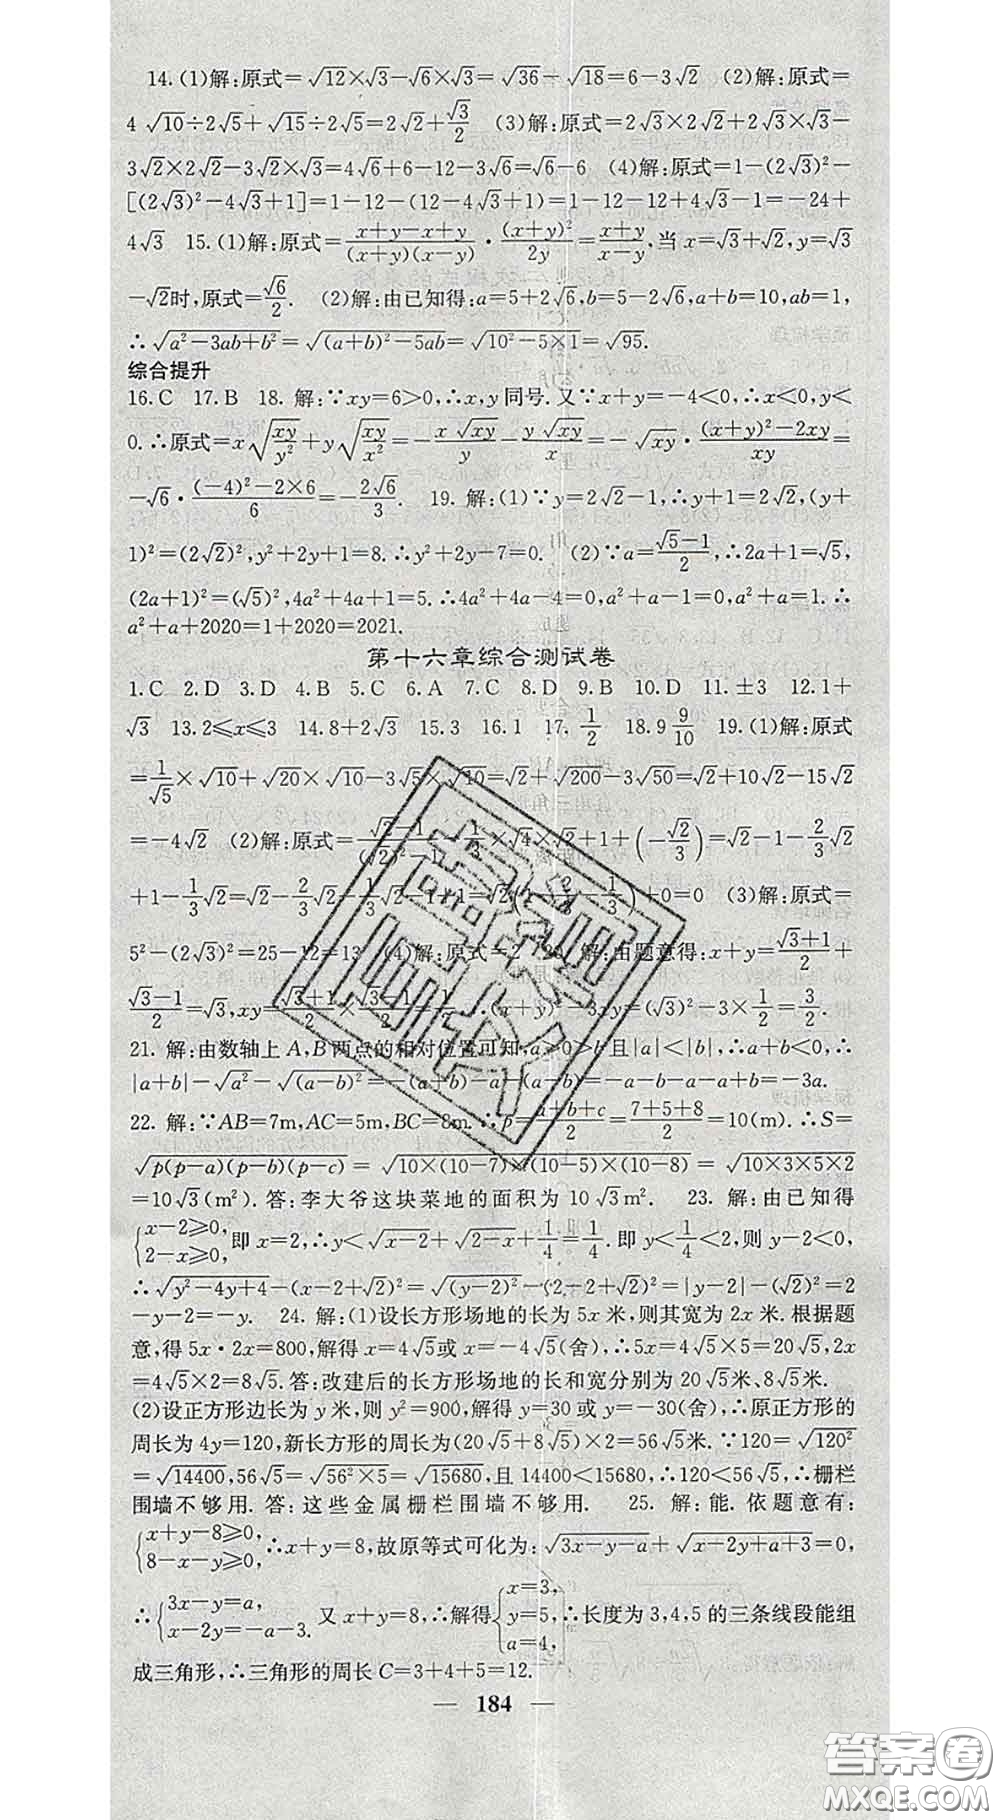 14.(1)解:原式=√12×√3-√6×√3=√36-√18=6-3√2 (2)解:原式=
4√10÷2√5+√15÷2√5=2√2+√3/2 (3)解:原式=2√3×2√2+2√3×√3-
3√2×2√2-3√2×√3=4√6+6-12-3√6=√6-6 (4)解:原式=1-(2√3)²-
[(2√3)²-4√3+1]=1-12-(12-4√3+1)=1-12-12+4√3-1=-24+
4√3 15.(1)解:原式=(x+y-x+y)/((x+y)(x-y))·(x+y)²/2y=(x+y)/(x-y),当x=√3+√2,y=√3
-√2时,原式=√6/2. (2)解:由已知得:a=5+2√6,b=5-2√6,a+b=10,ab=1,
∴√(a²-3ab+b²)=√((a+b)²-5ab)=√(10²-5×1)=√95.
综合提升
16.C 17.B 18. 解:∵xy=6>0,∴x,y同号.又∵x+y=-4<0,∴x<0,y<
0.∴原式=x√(xy/y²)+y√(xy/x²)=-x√xy/y-y√xy/x=-√xy·((x+y)²-2xy)/xy=
-√6·((-4)²-2×6)/6=-2√6/3. 19. 解:(1)∵y=2√2-1,∴y+1=2√2,(y+
1)²=(2√2)²,y²+2y+1=8.∴y²+2y-7=0. (2)∵a=(√5-1)/2,∴2a+1=√5,
(2a+1)²=(√5)²,4a²+4a+1=5.∴4a²+4a-4=0,a²+a-1=0,a²+a=1.∴
a²+a+2020=1+2020=2021.
第十六章综合测试卷
1.C 2.D 3.D 4.B 5.C 6.A 7.C 8.D 9.B 10.D 11.±3 12.1+
√3 13.2≤x≤3 14.8+2√3 15.3 16.1 17.1/2 18.9 9/10 19.(1)解:原式
=1/√5×√10+√20×√10-3√5×√10=√2+√200-3√50=√2+10√2-15√2
=-4√2 (2)解:原式=(√2-1)/((√2)²-1)-1/3×√4×√2+1+(-√2/3)=√2-1-2/3√2
+1-1/3√2=√2-2/3√2-1/3√2-1+1=√2(1-2/3-1/3)+0=0 (3)解:原式=
5²-(2√3)²=25-12=13 (4)解:原式=2 20. 解:由题意得:x+y=(√3+1)/2+
(√3-1)/2=√3,xy=(√3+1)/2×(√3-1)/2=1/2.∴(x+y)²-3xy=(√3)²-3×1/2=3/2.
21. 解:由数轴上A,B两点的相对位置可知,a>0>b且|a|<|b|,∴a+b<0,∴
|a+b|-√a²-√(a-b)²=-(a+b)-a-(a-b)=-a-b-a-a+b=-3a.
22. 解:∵AB=7m,AC=5m,BC=8m.∴p=(a+b+c)/2=(7+5+8)/2=10(m).∴S=
√(p(p-a)(p-b)(p-c))=√(10×(10-7)×(10-5)×(10-8))=√(10×3×5×2)
=10√3(m²).答:李大爷这块菜地的面积为10√3m². 23. 解:由已知得
{x-2≥0, 2-x≥0, 即x=2,∴y<√(x-2)+√(2-x)+1/4=1/4.即y<1/4<2,则y-2<0,
∴√(y²-4y+4)-(x-2+√2)²=√(y-2)²-(2-2+√2)²=|y-2|-(√2)²=2
-y-2=-y. 24. 解:(1)设长方形场地的长为5x米,则其宽为2x米.根据题
意,得5x·2x=800,解得x=4√5或x=-4√5(舍),∴5x=4√5×5=20√5,2x
=4√5×2=8√5.答:改建后的长方形场地的长和宽分别为20√5米、8√5米.
(2)设正方形边长为y米,则y²=900,解得y=30或y=-30(舍),∴原正方形的
周长为4y=120,新长方形的周长为(20√5+8√5)×2=56√5米.∵120=√120²
=√14400,56√5=√(56²×5)=√15680,且14400<15680,∴120<56√5,∴栅栏
围墙不够用.答:这些金属栅栏围墙不够用. 25. 解:能.依题意有:
{x+y-8≥0, 8-x-y≥0, ∴x+y=8,故原等式可化为:√(3x-y-a)+√(x-2y+a+3)=0,
∴{3x-y=a, x-2y=-a-3. 又x+y=8,∴解得{x=3, y=5, a=4, ∴长度为3,4,5的三条线段能组
成三角形,∴三角形的周长C=3+4+5=12.
— 184 —
答案圈
MXQE.COM